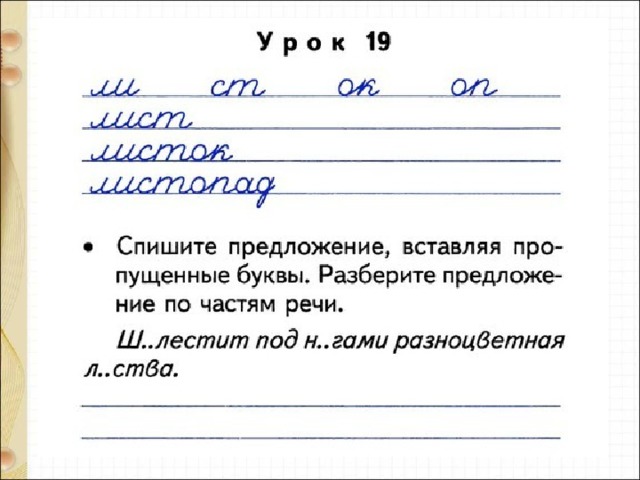 Урок 19
ли ст ок оп
лист
листок
листопад
• Спишите предложение, вставляя про-
пущенные буквы. Разберите предложе-
ние по частям речи.
Ш..лестит под н..гами разноцветная
л..ства.